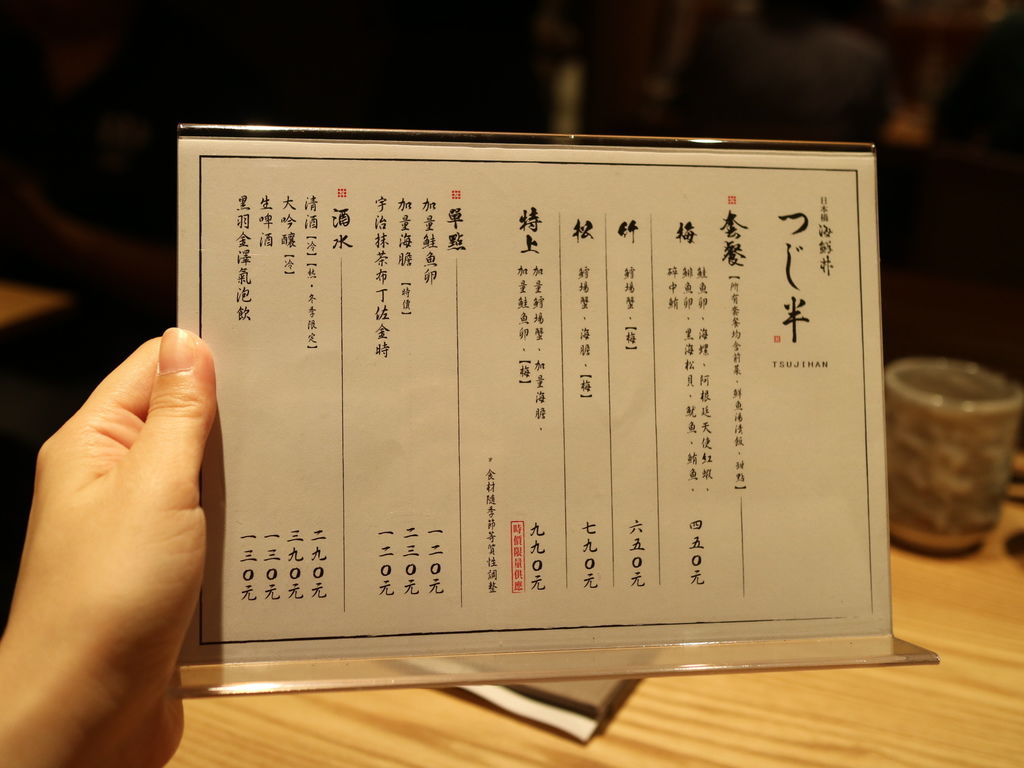 日本橋海鮮丼
つじ半
TSUJIHAN
套餐【所有套餐均含前菜、鮮魚湯清飯、甜點】
梅
鮭魚卵、海螺、阿根廷天使紅蝦、
鯡魚卵、黑海松貝、魷魚、鮪魚、
碎中鮪
四五〇元
竹 鱈場蟹、【梅】 六五〇元
松 鱈場蟹、海膽、【梅】 七九〇元
特上
加量鱈場蟹、加量海膽、
加量鮭魚卵、【梅】
九九〇元
時價限量供應
*食材隨季節等質性調整
單點
加量鮭魚卵 一二〇元
加量海膽【時價】 二三〇元
宇治抹茶布丁佐金時 一二〇元
酒水
清酒【冷】【熱・冬季限定】 二九〇元
大吟釀【冷】 三九〇元
生啤酒 一三〇元
黑羽金澤氣泡飲 一三〇元